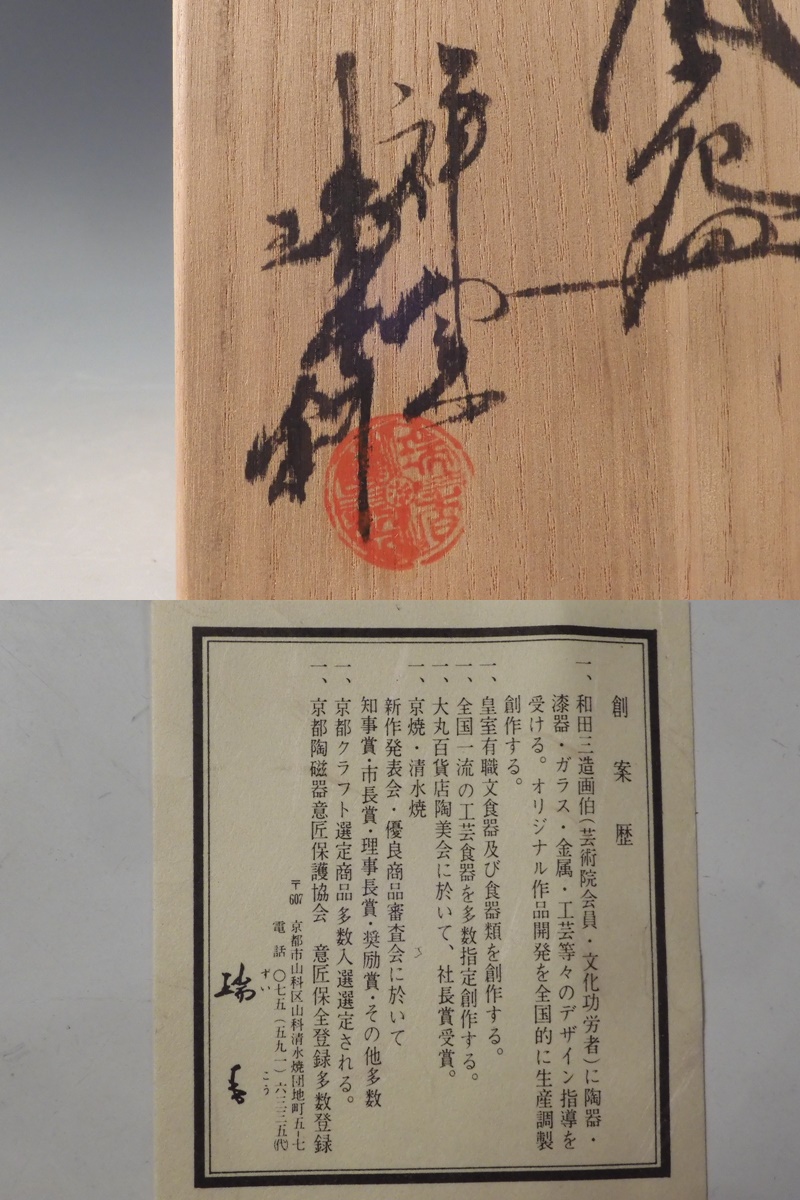 創案歴
一、和田三造画伯（芸術院会員・文化功労者）に陶器・
漆器・ガラス・金属・工芸等々のデザイン指導を
受ける。オリジナル作品開発を全国的に生産調製
創作する。
一、皇室有職文食器及び食器類を創作する。
一、全国一流の工芸食器を多数指定創作する。
一、大丸百貨店陶美会に於いて、社長賞受賞。
一、京焼・清水焼
新作発表会・優良商品審査会に於いて
知事賞・市長賞・理事長賞・奨励賞・その他多数
一、京都クラフト選定商品多数入選選定される。
一、京都陶磁器意匠保護協会 意匠保全登録多数登録
〒607 京都市山科区山科清水焼団地町五-七
電話 〇七五（五九一）六三三五㈹
瑞 ずい
こう